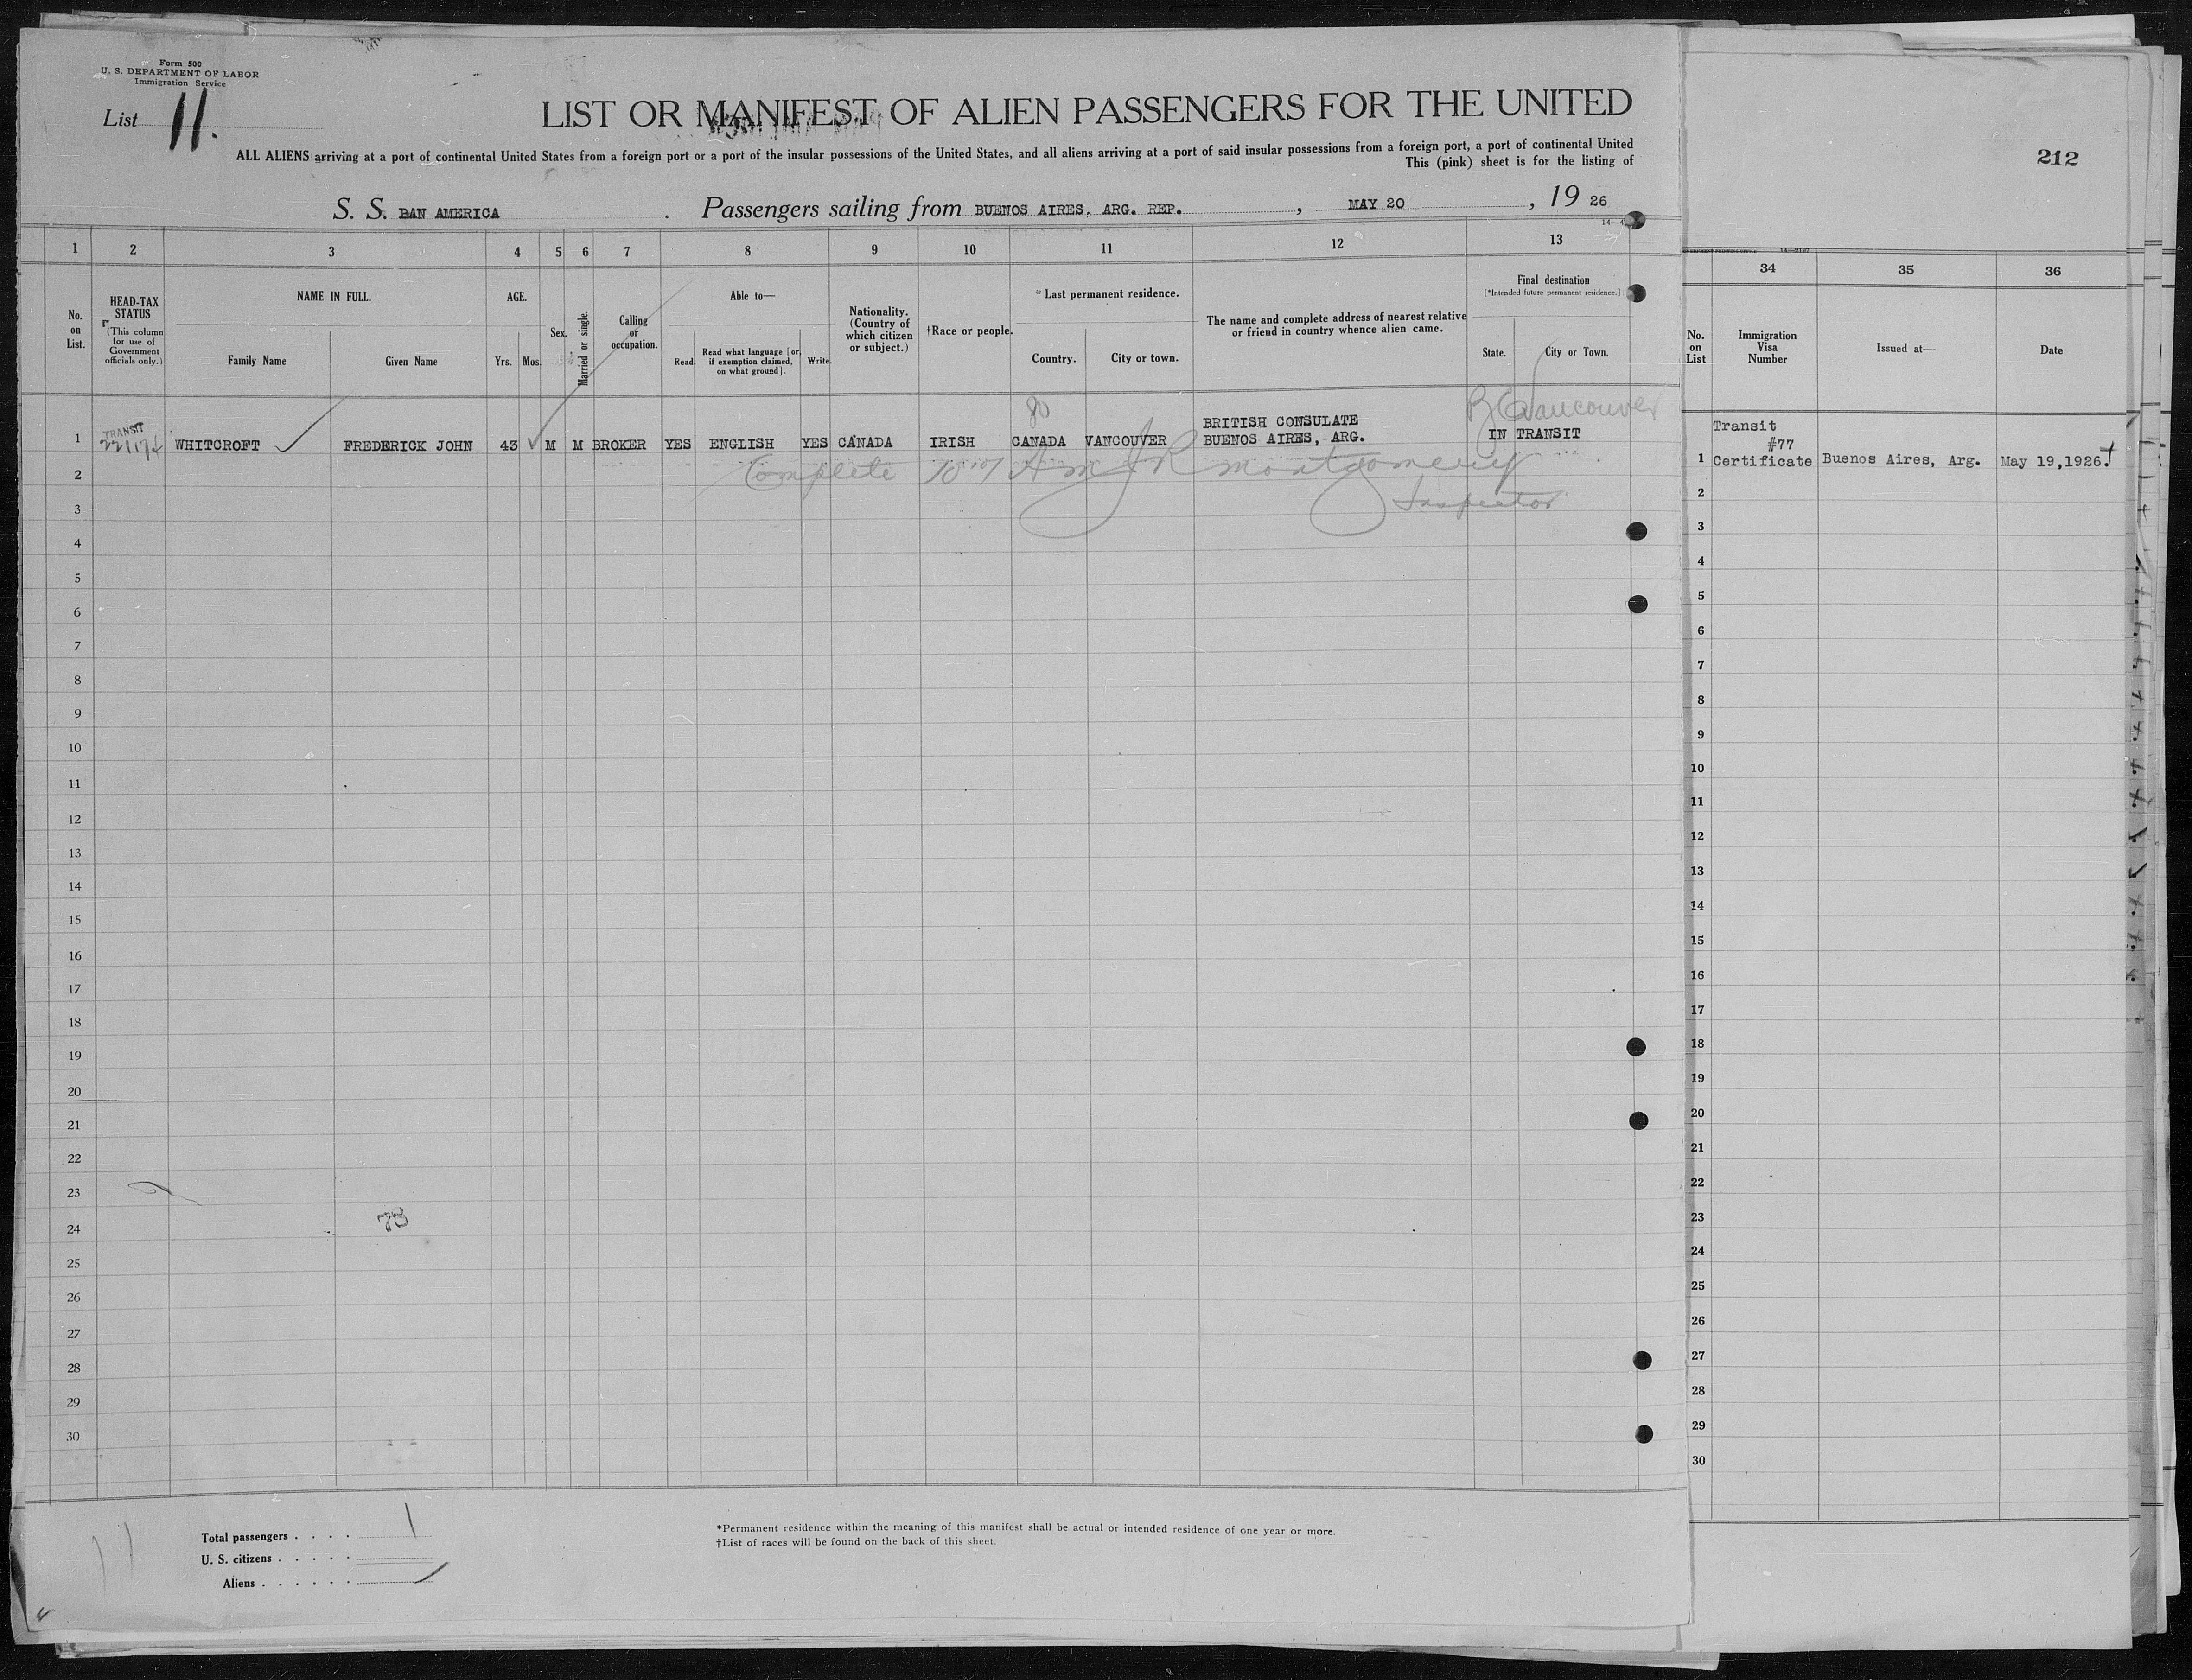 Form 500
U. S. DEPARTMENT OF LABOR
Immigration Service
List 11.
LIST OR MANIFEST OF ALIEN PASSENGERS FOR THE UNITED
ALL ALIENS arriving at a port of continental United States from a foreign port or a port of the insular possessions of the United States, and all aliens arriving at a port of said insular possessions from a foreign port, a port of continental United
This (pink) sheet is for the listing of
212
S. S. PAN AMERICA . Passengers sailing from BUENOS AIRES, ARG. REP. , MAY 20 , 19 26
1 2 3 4 5 6 7 8 9 10 11 12 13
34 35 36
No. on List.
HEAD-TAX STATUS
(This column for use of Government officials only.)
NAME IN FULL.
Family Name Given Name
AGE.
Yrs. Mos.
Sex.
Married or single.
Calling or occupation.
Able to—
Read. Read what language [or, if exemption claimed, on what ground]. Write.
Nationality. (Country of which citizen or subject.)
†Race or people.
*Last permanent residence.
Country. City or town.
The name and complete address of nearest relative or friend in country whence alien came.
Final destination
[*Intended future permanent residence.]
State. City or Town.
No. on List
Immigration Visa Number
Issued at—
Date
80
B C Vancouver
TRANSIT
1 WHITCROFT FREDERICK JOHN 43 M M BROKER YES ENGLISH YES CANADA IRISH CANADA VANCOUVER BRITISH CONSULATE BUENOS AIRES, ARG. IN TRANSIT
1 Transit #77 Certificate Buenos Aires, Arg. May 19,1926.
Complete AM J R Montgomery
Inspector
2
3
4
5
6
7
8
9
10
11
12
13
14
15
16
17
18
19
20
21
22
23
24
25
26
27
28
29
30
2
3
4
5
6
7
8
9
10
11
12
13
14
15
16
17
18
19
20
21
22
23
24
25
26
27
28
29
30
73
Total passengers . . . . 1
U. S. citizens . . . . .
Aliens . . . . . .
*Permanent residence within the meaning of this manifest shall be actual or intended residence of one year or more.
†List of races will be found on the back of this sheet.